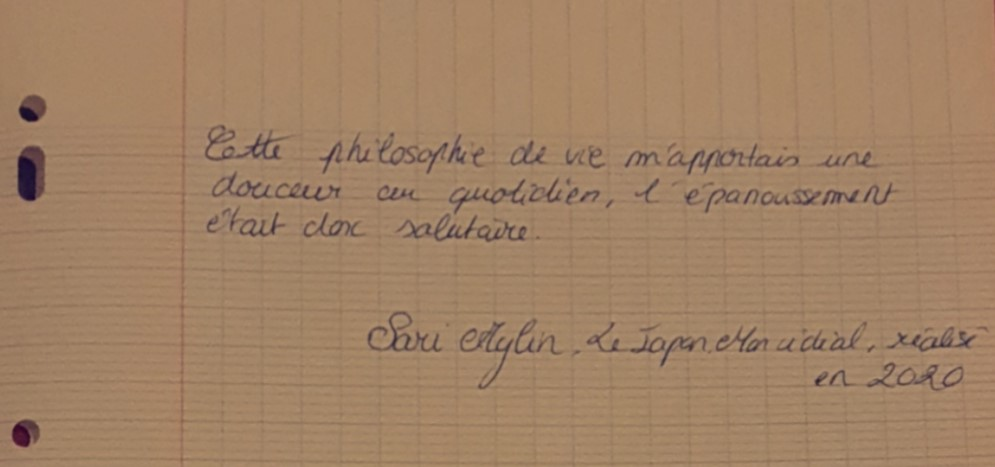 Cette philosophie de vie m'apportais une
douceur au quotidien, l'épanoussement
était donc salutaire.
Sari Aylin, Le Japon Mondial, réalisé
en 2020